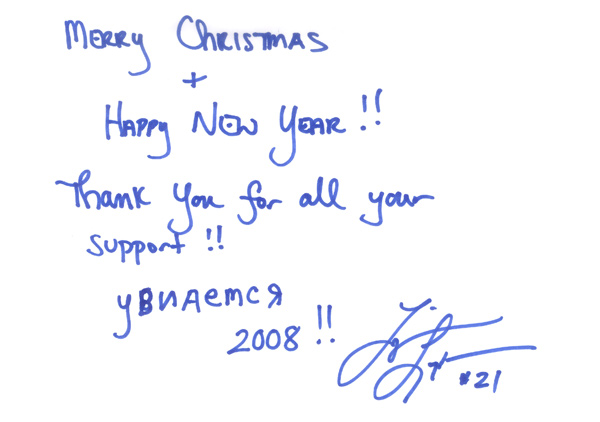 Merry Christmas
+
Happy New Year !!
Thank you for all your
support !!
увидемся
2008 !!
#21